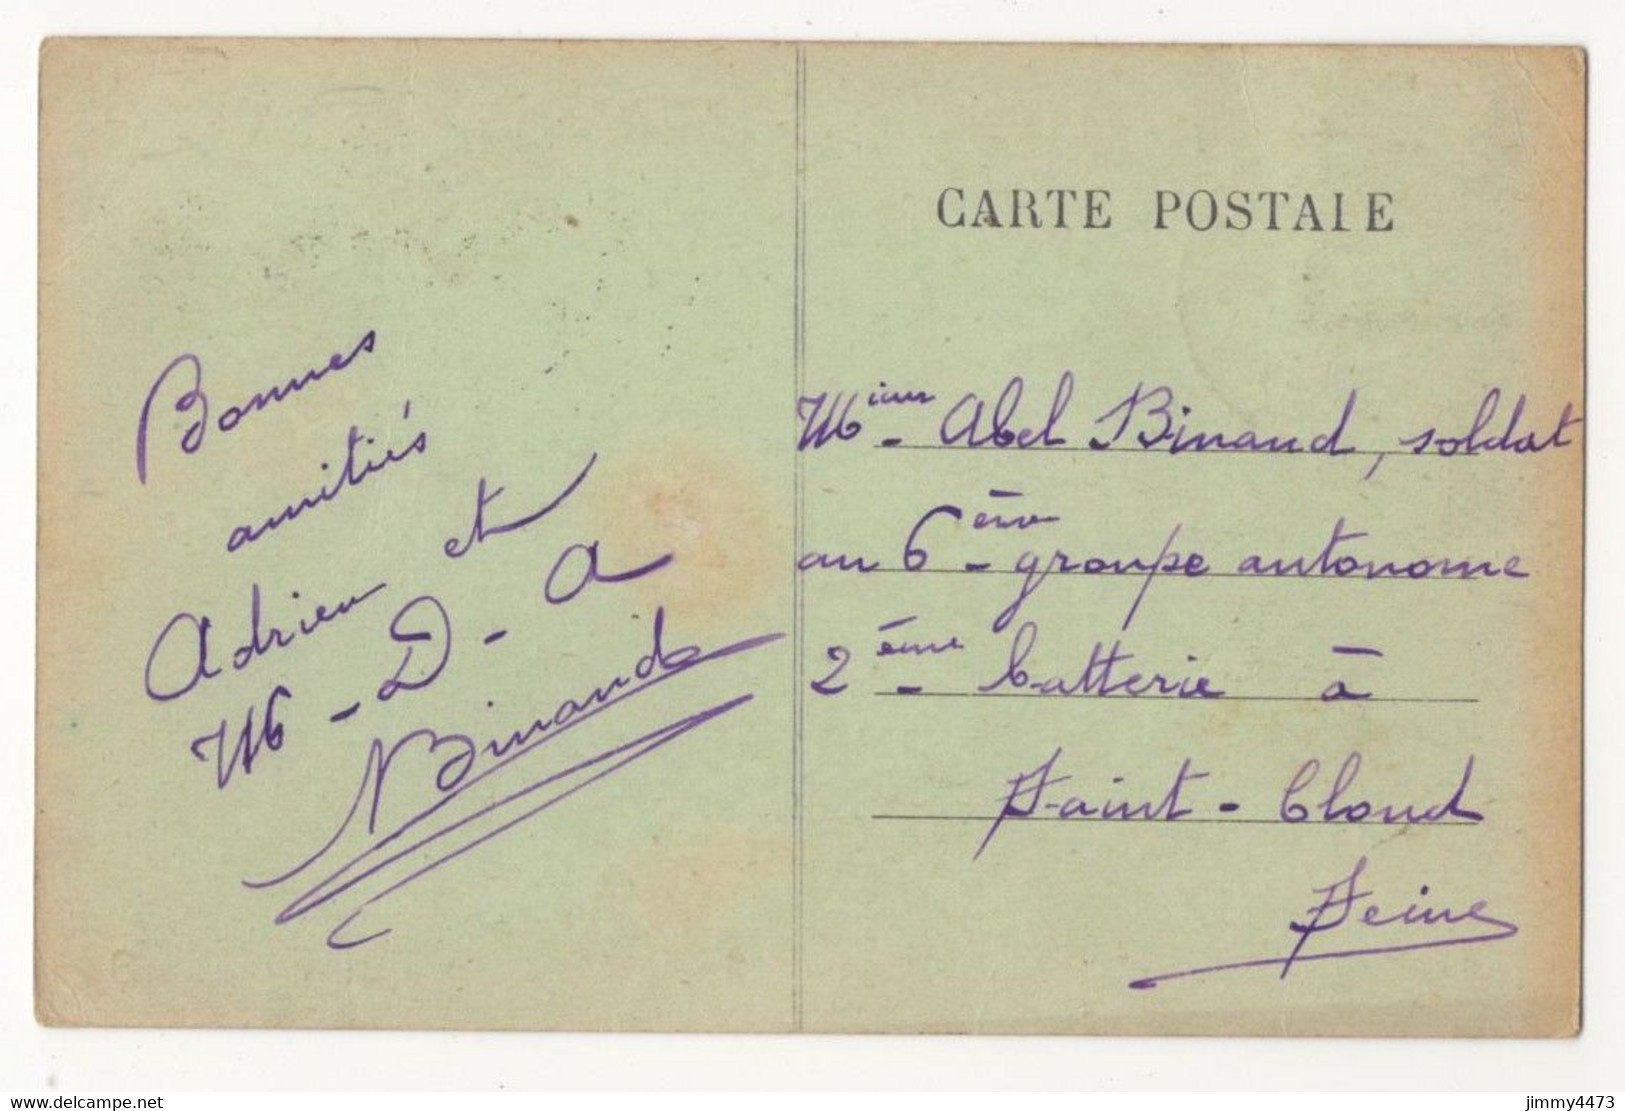 Bonnes
amitiés
Adrien et
M - D - A
Binaud
CARTE POSTALE
Mieur - Abel Binaud, soldat
au 6ème - groupe autonome
2ème - batterie à
Saint - Cloud
Seine
www.delcampe.net
jimmy4473